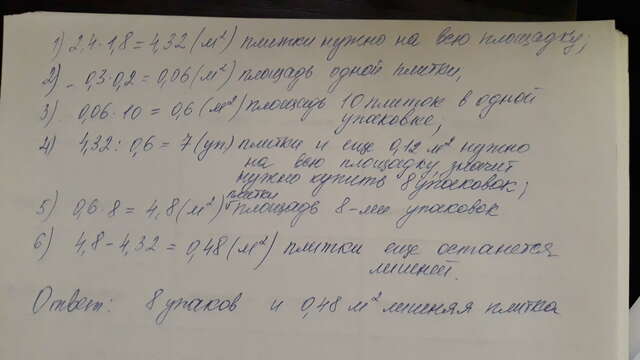 1) 2,4·1,8=4,32 (м²) плитки нужно на всю площадку;
2) 0,3·0,2=0,06 (м²) площадь одной плитки,
3) 0,06·10=0,6 (м²) площадь 10 плиток в одной
упаковке;
4) 4,32:0,6=7 (уп) плитки и ещё 0,12 м² нужно
на всю площадку, значит
нужно купить 8 упаковок;
плитки
5) 0,6·8=4,8 (м²) площадь 8-ми упаковок
6) 4,8-4,32=0,48 (м²) плитки ещё останется
лишней.
Ответ: 8 упаков и 0,48 м² лишняя плитка